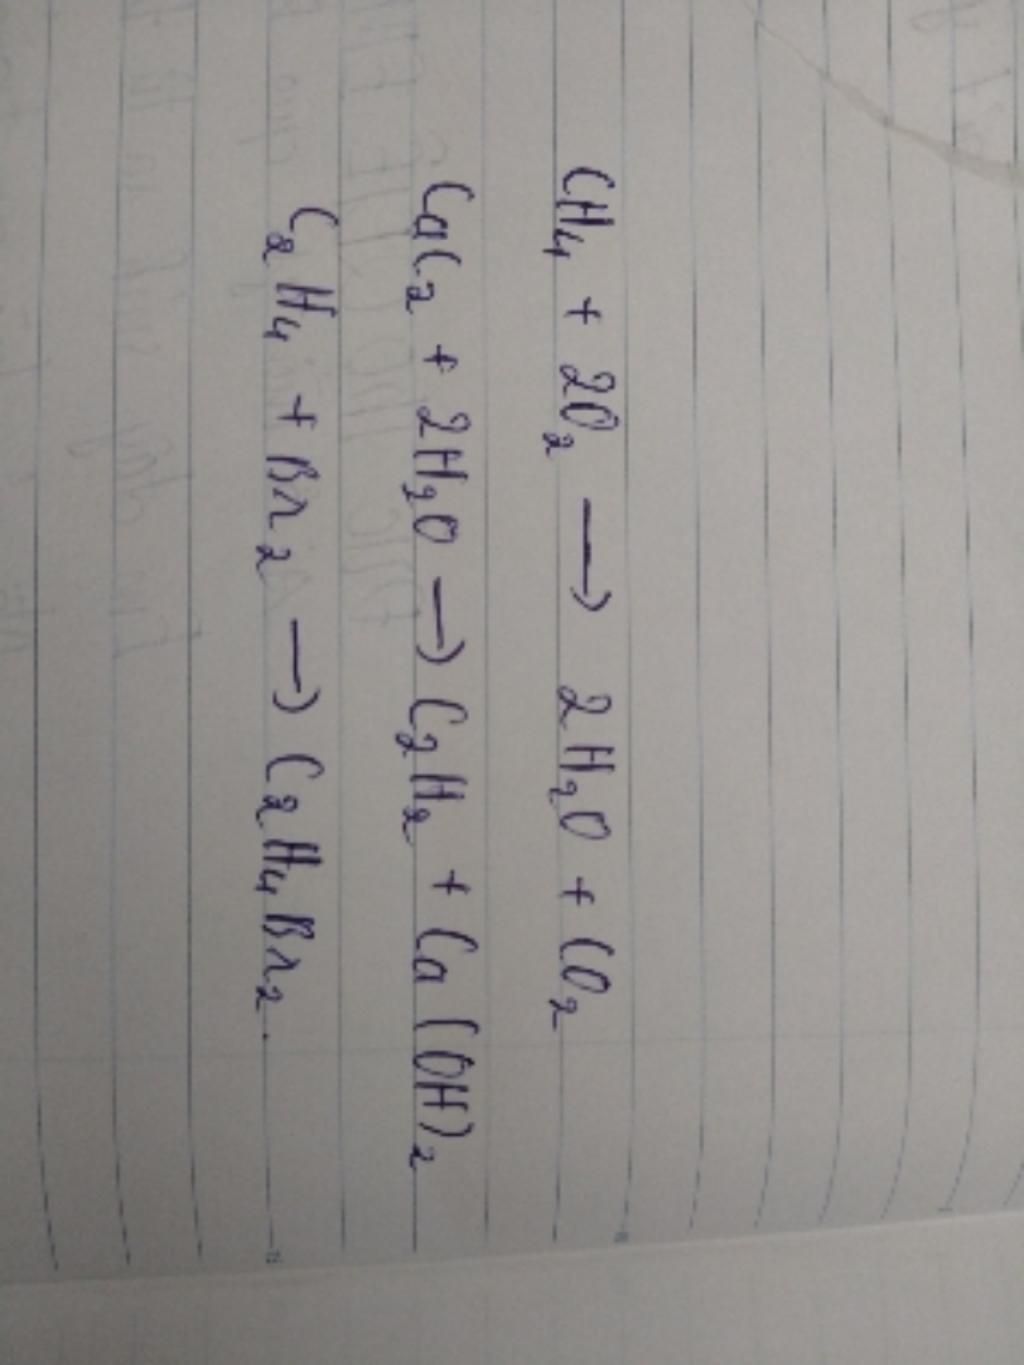 CH₄ + 2O₂ → 2H₂O + CO₂
CaC₂ + 2H₂O → C₂H₂ + Ca(OH)₂
C₂H₄ + Br₂ → C₂H₄Br₂.